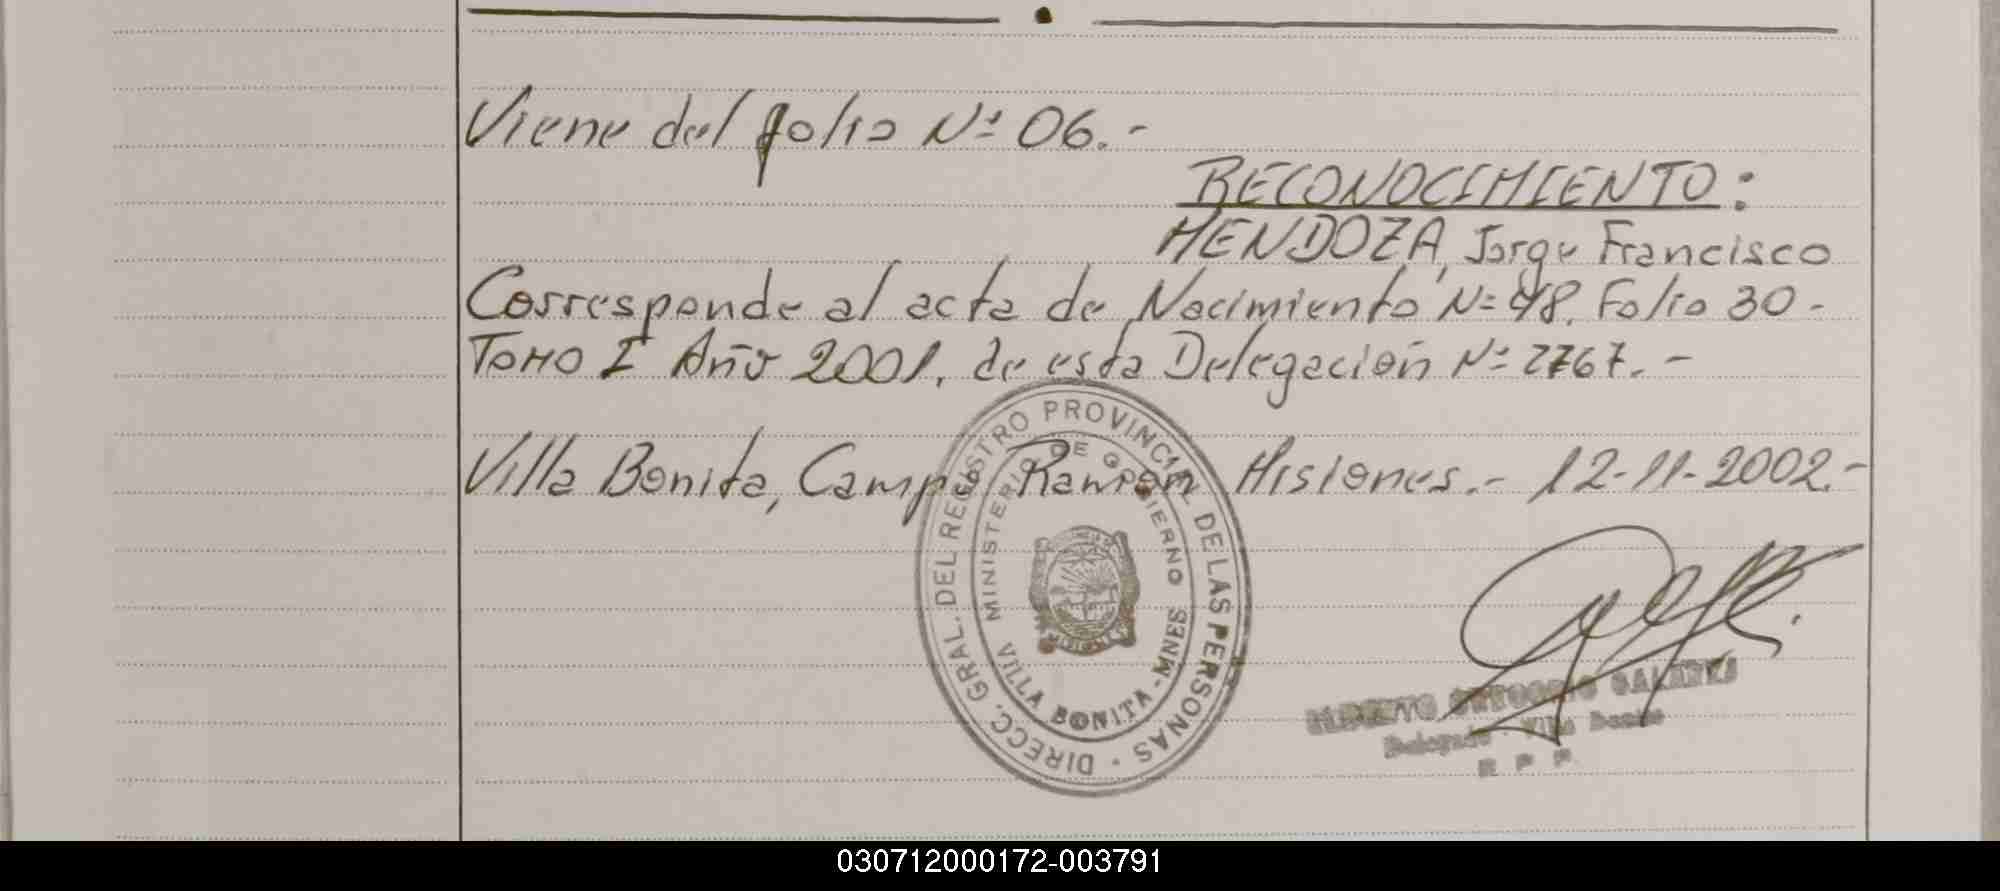 Viene del folio Nº 06.-
RECONOCIMIENTO:
MENDOZA, Jorge Francisco
Corresponde al acta de Nacimiento Nº 48. Folio 30-
TOMO I Año 2001, de esta Delegación Nº 2767.-
Villa Bonita, Campo Ramón Misiones.- 12-11-2002.-
DIRECC. GRAL. DEL REGISTRO PROVINCIAL DE LAS PERSONAS
MINISTERIO DE GOBIERNO
VILLA BONITA - MNES
Delegado - Villa Bonita
R P P
030712000172-003791